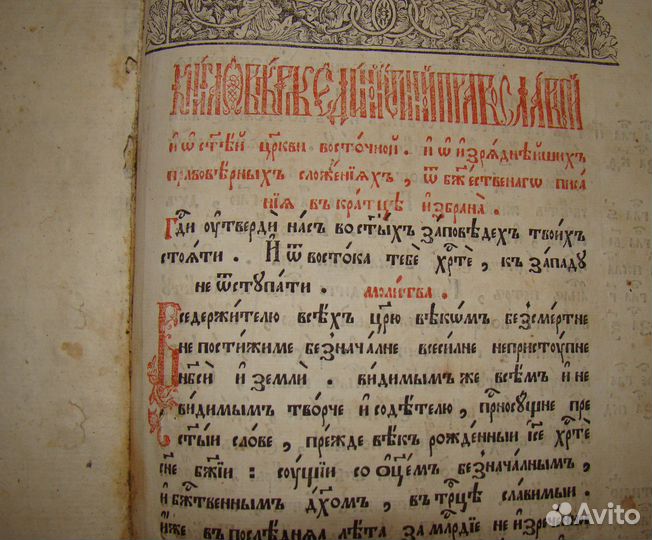 КНИГА Ѡ ВѢРѢ ЕДИНОЙ ИСТИННОЙ ПРАВОСЛАВНОЙ
и҆ ѡ҆ ст҃ѣй цр҃кви восто́чной. и҆ ѡ҆ и҆зрѧднѣ́йшихъ
правовѣ́рныхъ сложе́нїѧхъ, ѿ бж҃е́ственагѡ писа
нїѧ въкра́тцѣ и҆збрана̀.
Гд҃и оу҆твердѝ на́съ во ст҃ы́хъ за́повѣдехъ твои́хъ
стоѧ́ти. И҆ ѿ восто́ка тебѐ хр҃тѐ, къ за́падꙋ
не ѿстꙋпа́ти. моли́тва.
Вседержи́телю всѣ́хъ цр҃ю̀ вѣкѡ́мъ безсме́ртне
непости́жиме безнача́лне всеси́лне непристꙋ́пне
нб҃си̂ и҆ землѝ. ви́димымъ же всѣ́мъ и҆ не
ви́димымъ тво́рче и҆ содѣ́телю, прⷭ҇носꙋ́щне пре
ст҃ы́и сло́ве, пре́жде вѣ́къ рожде́нныи і҆с҃е хр҃тѐ
сн҃е бж҃їи : сꙋ́щїи со ѻ҆ц҃е́мъ безнача́лнымъ,
и҆ бж҃твеннымъ дх҃омъ, въ трⷪ҇цѣ сла́вимыи.
и҆́же въ послѣ́днѧѧ лѣ́та за млⷭ҇рдїе
Avito